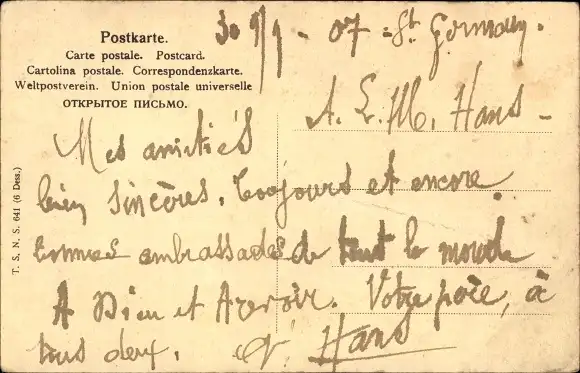 Postkarte.
Carte postale. Postcard.
Cartolina postale. Correspondenzkarte.
Weltpostverein. Union postale universelle
ОТКРЫТОЕ ПИСЬМО.
T. S. N. S. 641 (6 Dess.)
30 9/1 - 07 = St. Germain.
A. L. M. Hans -
Mes amitiés
bien sincères. Toujours et encore
bonnes ambrassades de tout le monde
A Dieu et Arevoir. Votre père, à
tous deux. Hans